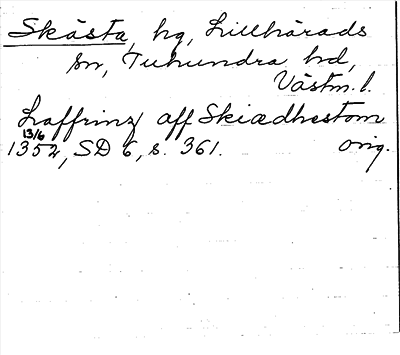 Skästa, hg, Lillhärads
sn, Tuhundra hd,
Västm. l.
Laffrinz aff Skiædhestom
13/6
1352, SD 6, s. 361. orig.